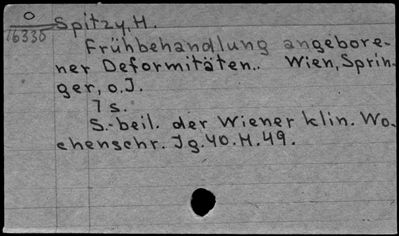 O
16335
Spitzy, H.
Frühbehandlung angebore-
ner Deformitäten.. Wien, Sprin-
ger, o.J.
7 s.
S.-beil. der Wiener klin. Wo-
chenschr. Jg.40.H.49.